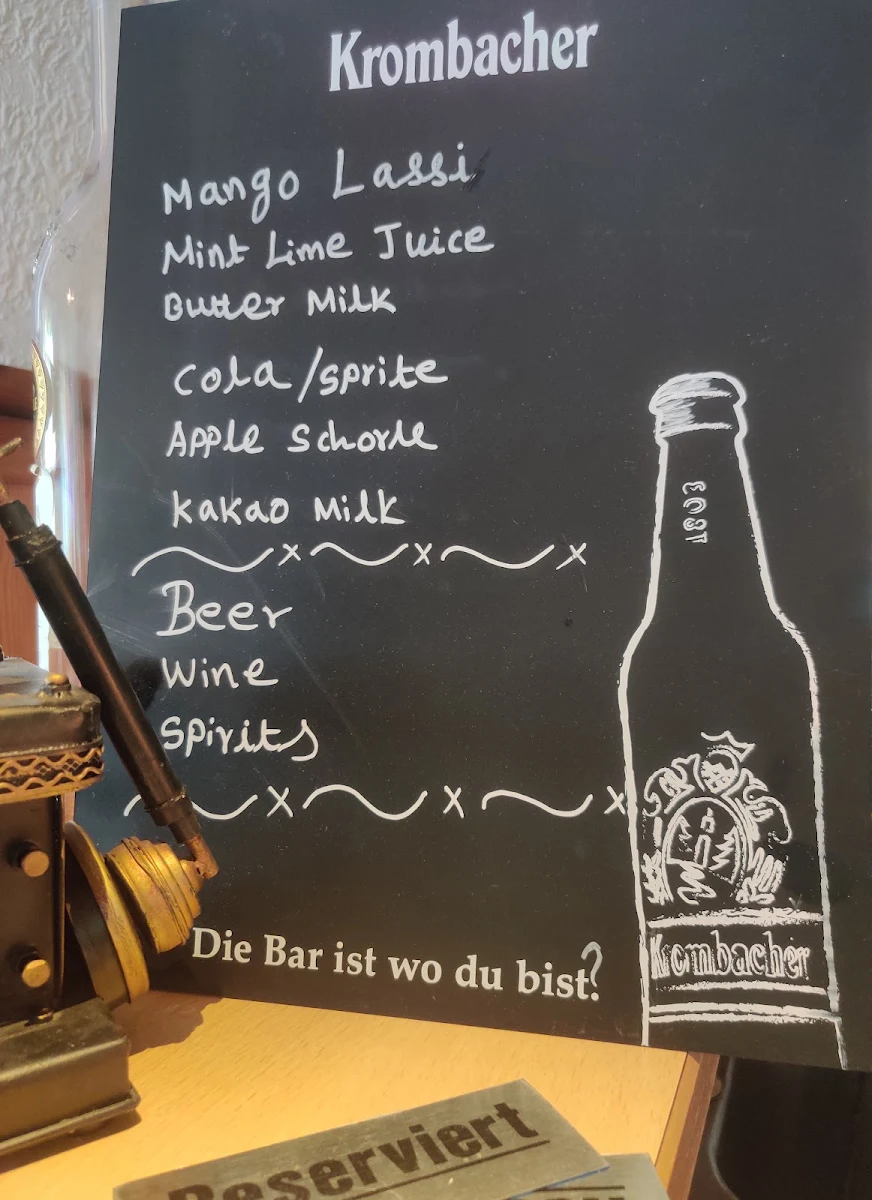 Krombacher
Mango Lassi
Mint Lime Juice
Butter Milk
Cola/sprite
Apple Schorle
Kakao Milk
Beer
Wine
Spirits
1803
Krombacher
Die Bar ist wo du bist?
Reserviert